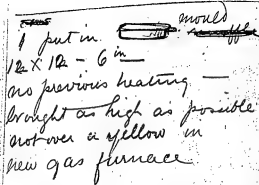 1 put in mould
12 X 12 - 6 in —
no previous heating —
brought as high as possible
not over a yellow in
new gas furnace